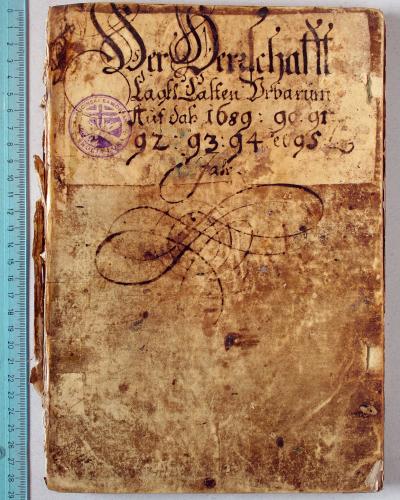 Der Herrschafft
Lagkh Casten Urbarium
Auf das 1689: 90: 91:
92: 93: 94 et 95
Jahr